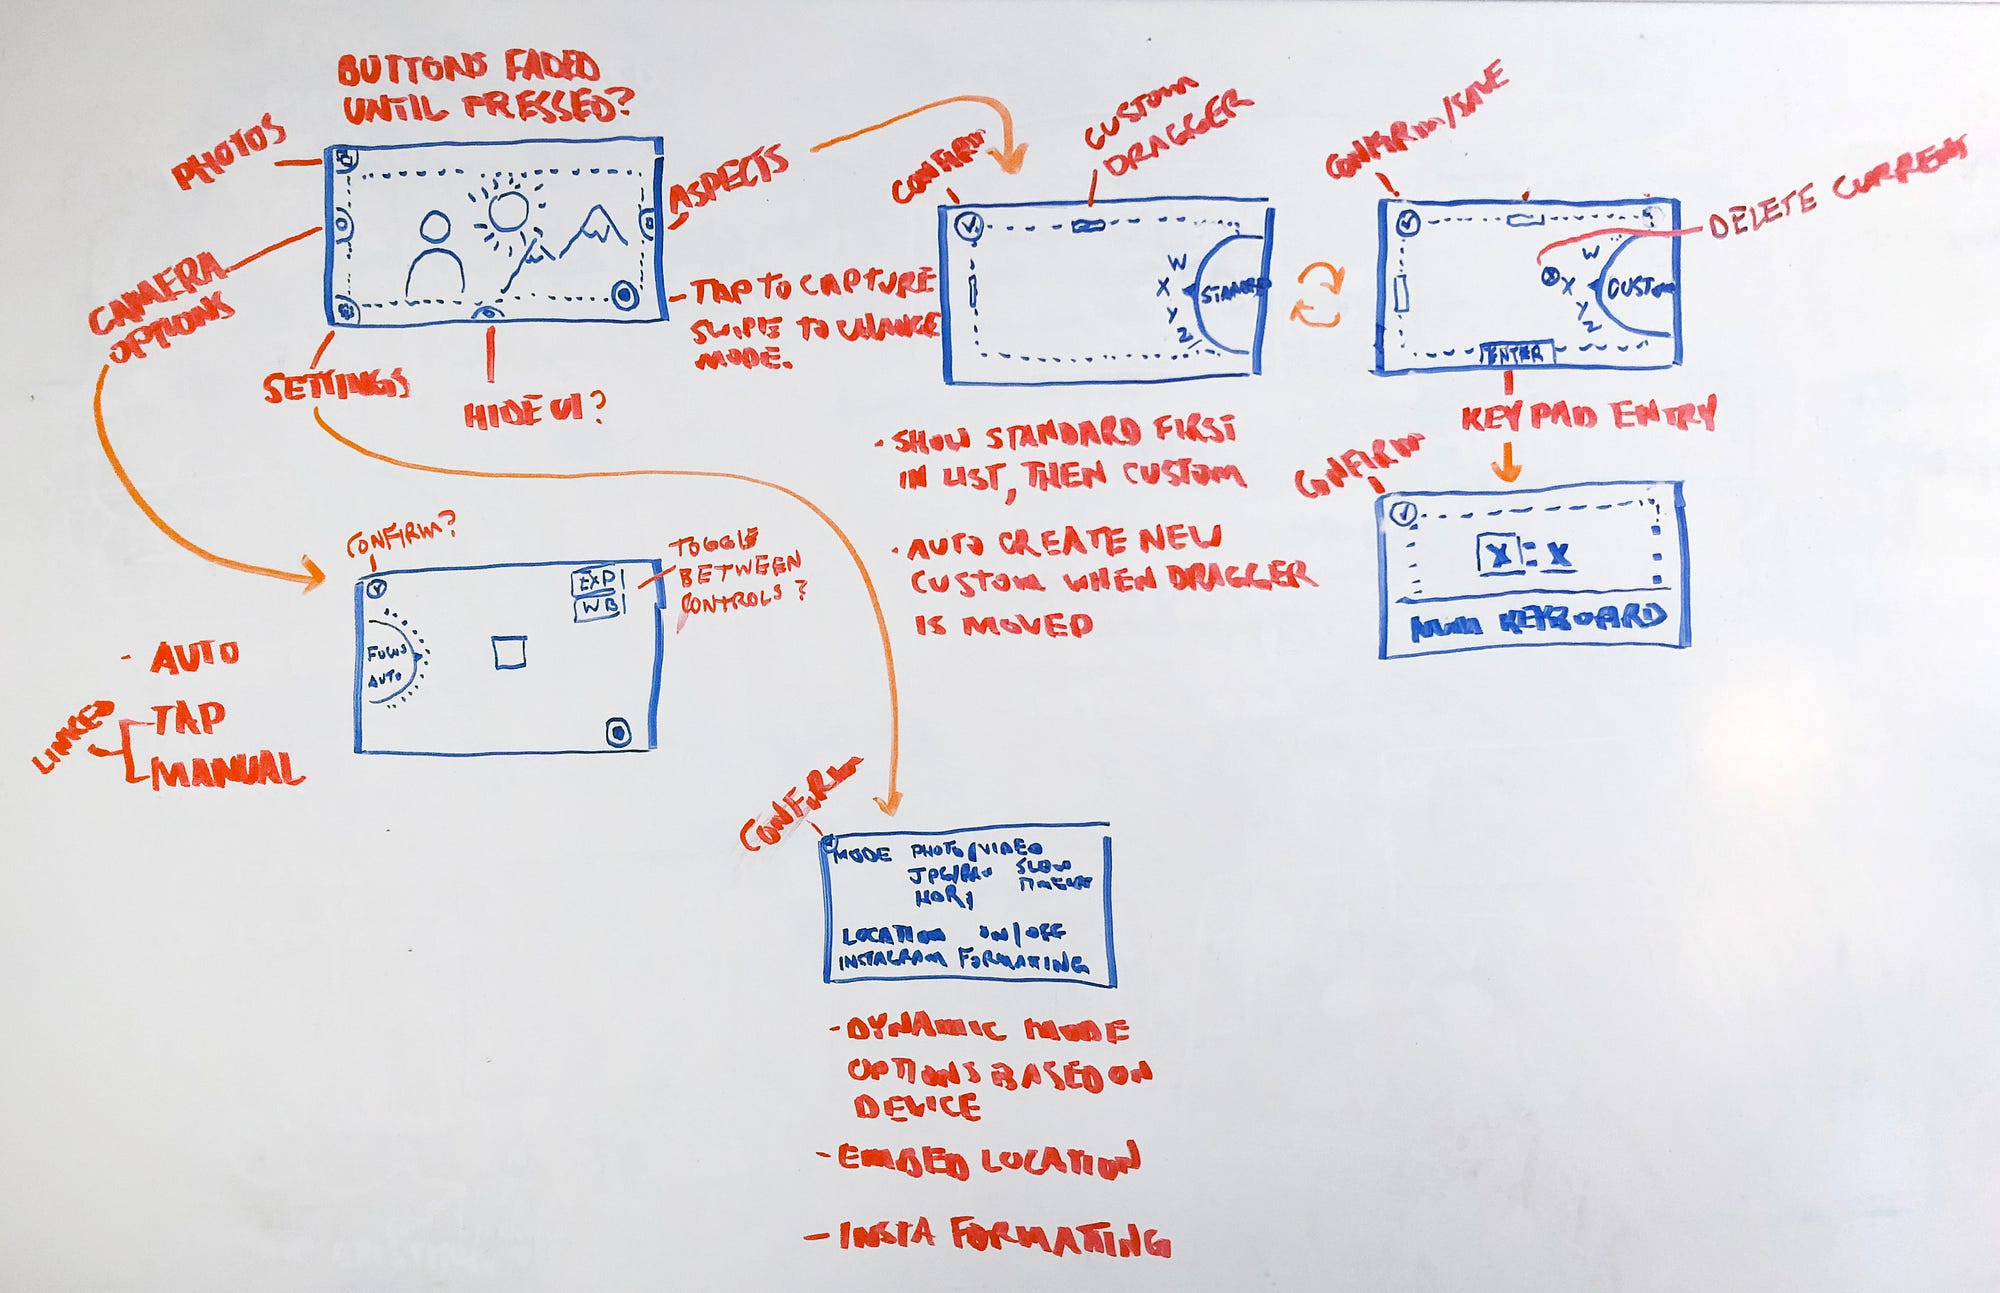 BUTTONS FADED
UNTIL PRESSED?
PHOTOS
CAMERA
OPTIONS
SETTINGS
HIDE UI?
ASPECTS
- TAP TO CAPTURE
SWIPE TO CHANGE
MODE.
CONFIRM
CUSTOM
DRAGGER
W
X
Y
Z
STANDARD
- SHOW STANDARD FIRST
IN LIST, THEN CUSTOM
- AUTO CREATE NEW
CUSTOM WHEN DRAGGER
IS MOVED
CONFIRM/SAVE
DELETE CURRENT
W
X
Y
Z
CUSTOM
ENTER
KEYPAD ENTRY
CONFIRM
X:X
NUM KEYBOARD
CONFIRM?
EXP
WB
TOGGLE
BETWEEN
CONTROLS?
FOCUS
AUTO
- AUTO
LINKED
- TAP
- MANUAL
CONFIRM
MODE PHOTO/VIDEO
JPG/RAW SLOW
HDR
LOCATION ON/OFF
INSTAGRAM FORMATTING
- DYNAMIC MODE
OPTIONS BASED ON
DEVICE
- EMBED LOCATION
- INSTA FORMATTING